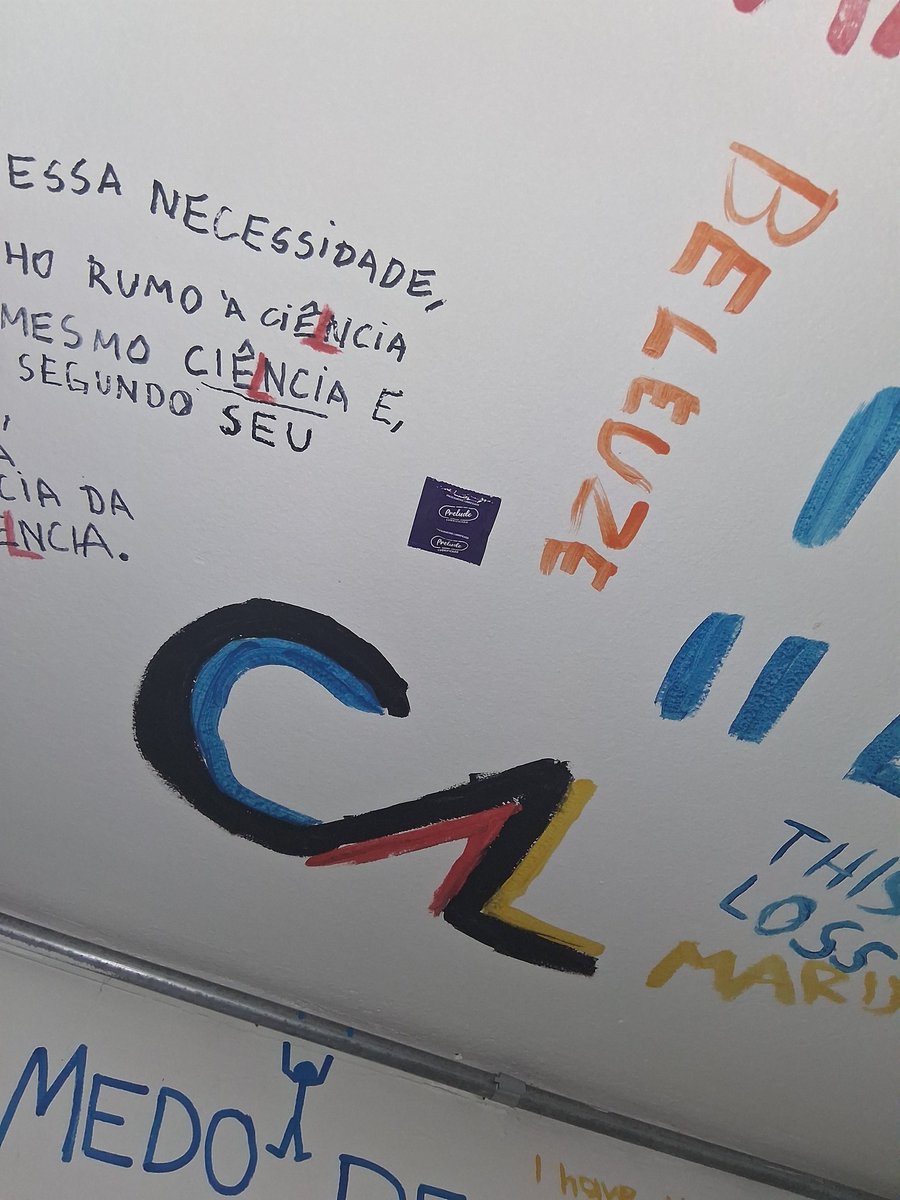 ESSA NECESSIDADE,
HO RUMO À CIÊLNCIA
MESMO CIÊLNCIA E,
SEGUNDO SEU
CIA DA
ÊLNCIA.
Prelude
Prelude
BELEUZE
THIS
LOSS
MEDO
DE
I have